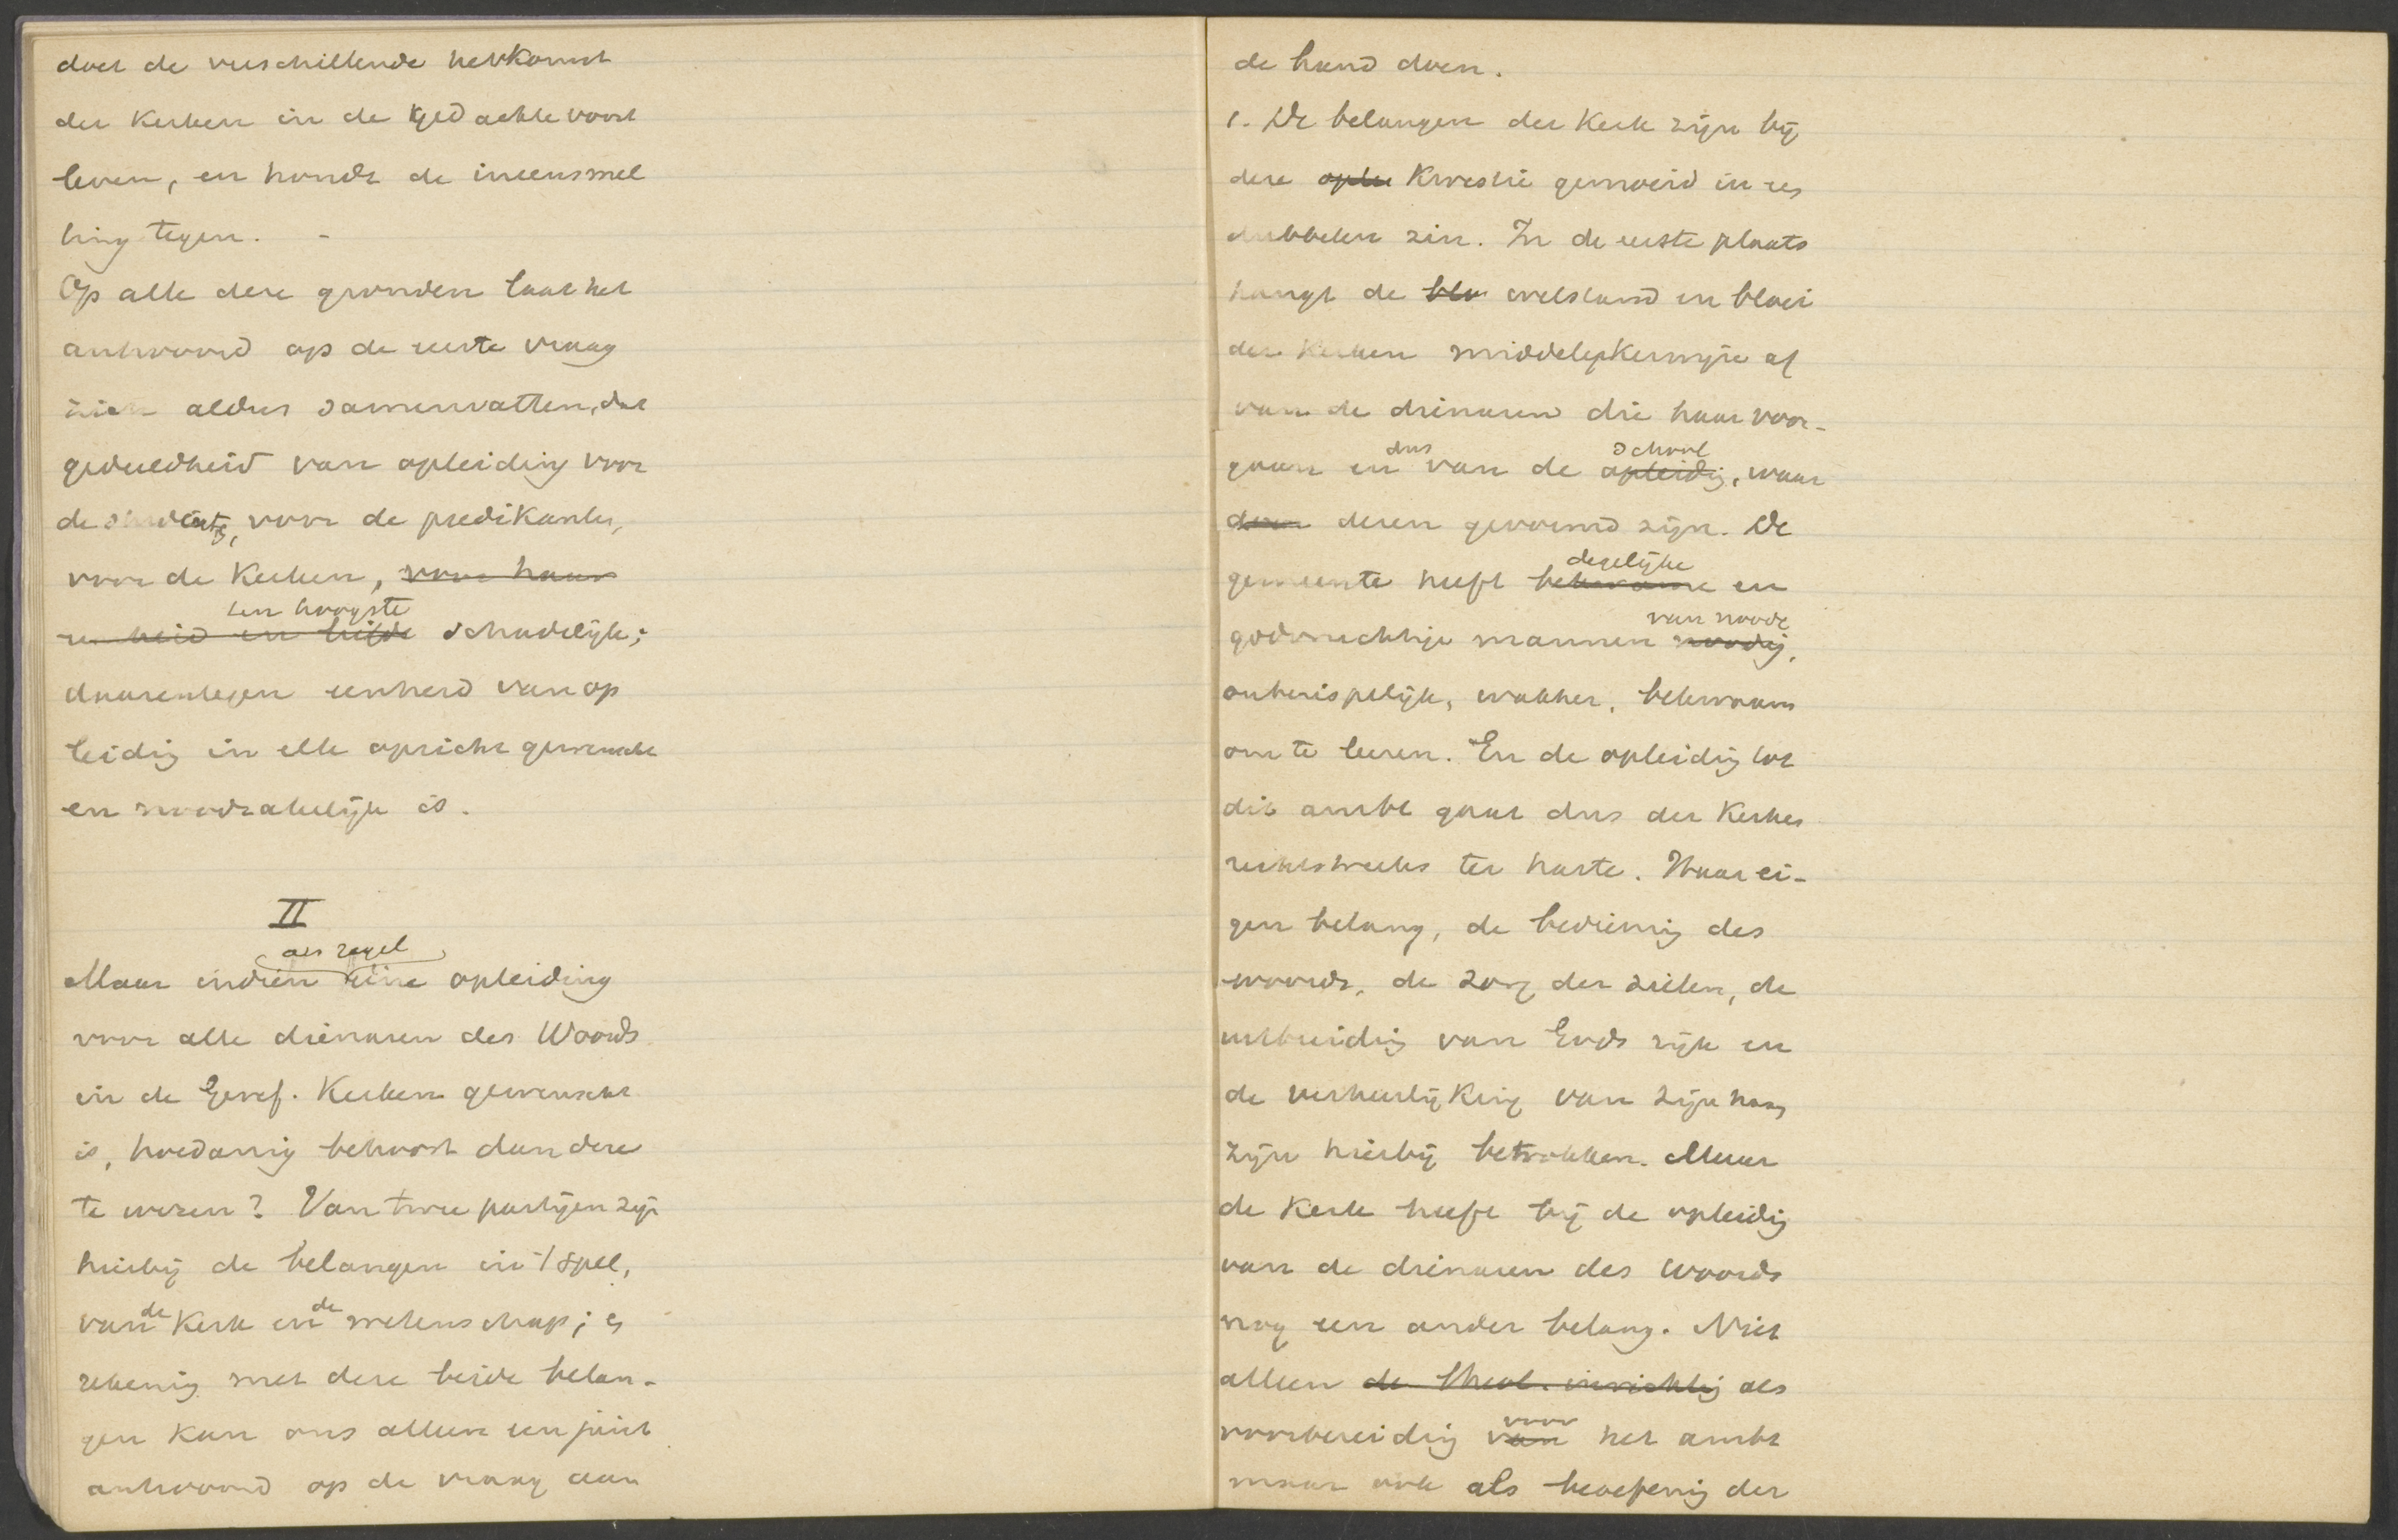 doet de verschillende herkomst
der Kerken in de gedachte voort
leven, en houdt de ineensmel
ting tegen. -
Op alle deze gronden laat het
antwoord op de eerste vraag
zich aldus samenvatten, dat
gedeeldheid van opleiding voor
de studenten, voor de predikanten,
voor de Kerken, voor haar
ten hoogste
eenheid en liefde schadelijk;
daarentegen eenheid van op
leidig in elk opzicht gewenscht
en noodzakelijk is.
II
als regel
Maar indien eene opleiding
voor alle dienaren des Woords
in de Geref. Kerken gewenscht
is, hoedanig behoort dan deze
te wezen? Van twee partijen zijn
hierbij de belangen in 't spel,
van de Kerk en de wetenschap; en
rekenig met deze beide belan-
gen kan ons alleen een juist
antwoord op de vraag aan
de hand doen.
1. De belangen der Kerk zijn bij
deze oplei Kwestie gemoeid in een
dubbelen zin. In de eerste plaats
hangt de blo welstand en bloei
der Kerken middelijkerwijze af
van de dienaren die haar voor-
dus school
gaan en van de opleidig, waar
door dezen gevormd zijn. De
degelijke
gemeente heeft bekwame en
van noode
godvruchtige mannen noodig,
onberispelijk, wakker, bekwaam
om te leeren. En de opleidig tot
dit ambt gaat dus der Kerken
rechtstreeks ter harte. Haar ei-
gen belang, de bedienig des
woords, de zorg der zielen, de
uitbreidig van Gods rijk en
de verheerlijking van zijn naam
zijn hierbij betrokken. Maar
de Kerk heeft bij de opleidig
van de dienaren des Woords
nog een ander belang. Niet
alleen de theol. inrichtig als
voor
voorbereidig van het ambt
maar ook als beoefenig der